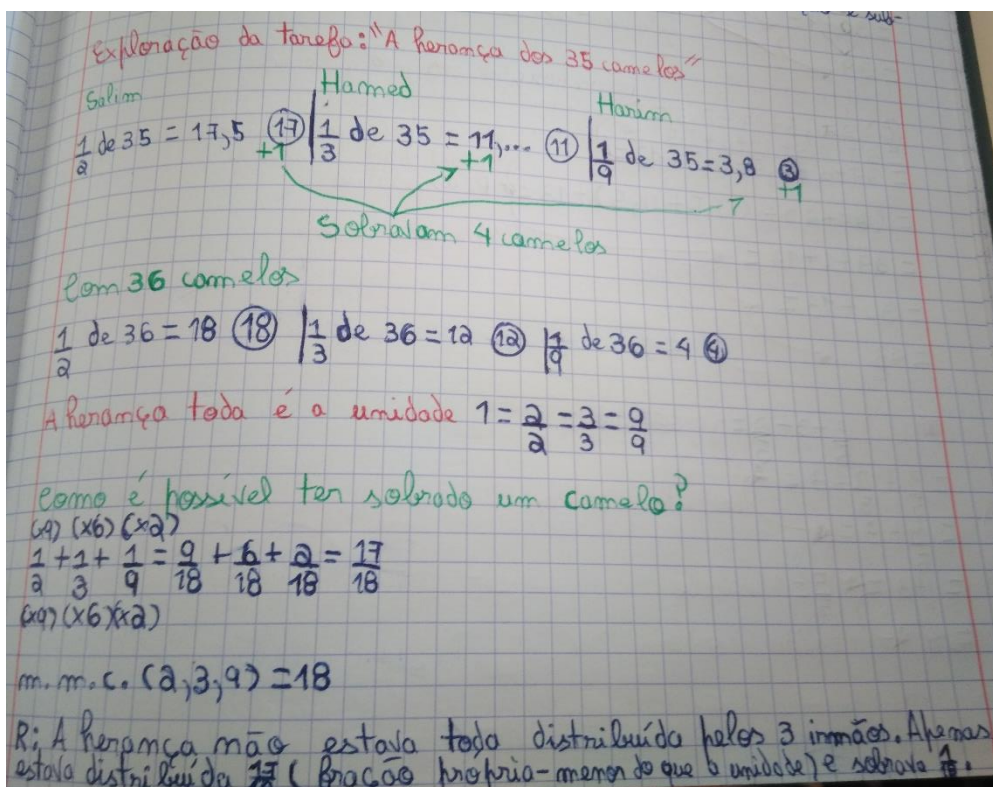 e sub-
Exploração da tarefa: "A herança dos 35 camelos"
Salim Hamed Harim
1/2 de 35 = 17,5 (17) | 1/3 de 35 = 11,... (11) | 1/9 de 35 = 3,8 (3)
+1 +1 +1
Sobravam 4 camelos
Com 36 camelos
1/2 de 36 = 18 (18) | 1/3 de 36 = 12 (12) | 1/9 de 36 = 4 (4)
A herança toda é a unidade 1 = 2/2 = 3/3 = 9/9
Como é possível ter sobrado um camelo?
(x9) (x6) (x2)
1/2 + 1/3 + 1/9 = 9/18 + 6/18 + 2/18 = 17/18
(x9) (x6) (x2)
m.m.c. (2,3,9) = 18
R: A herança não estava toda distribuída pelos 3 irmãos. Apenas
estava distribuída 17/18 (fração própria - menor do que a unidade) e sobrava 1/18.